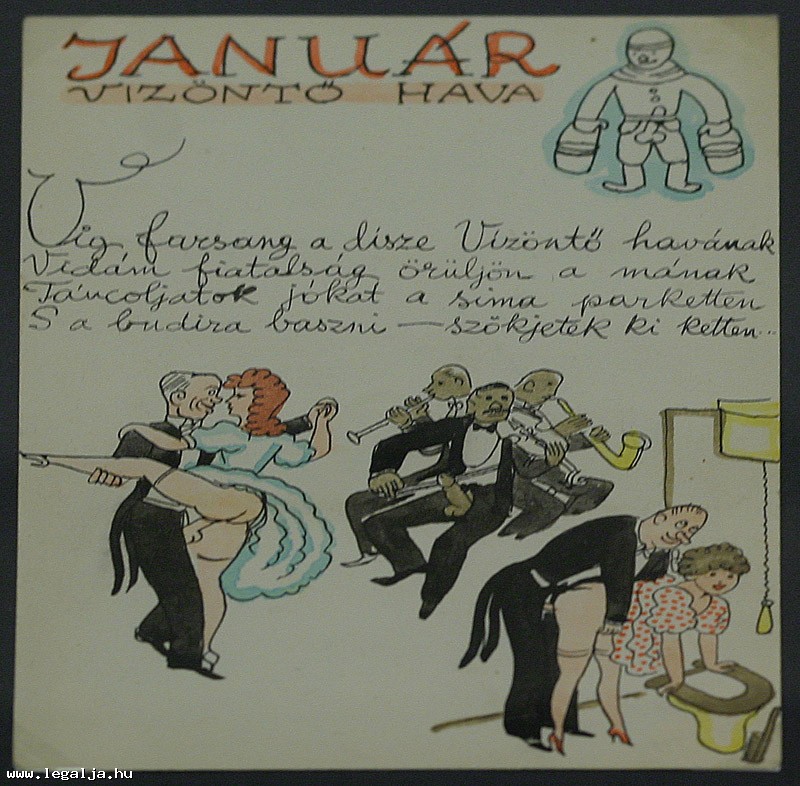 JANUÁR
VIZÖNTŐ HAVA
Víg farsang a dísze Vízöntő havának
Vidám fiatalság örüljön a mának
Táncoljatok jókat a sima parketten
S a budira baszni — szökjetek ki ketten..
www.legalja.hu